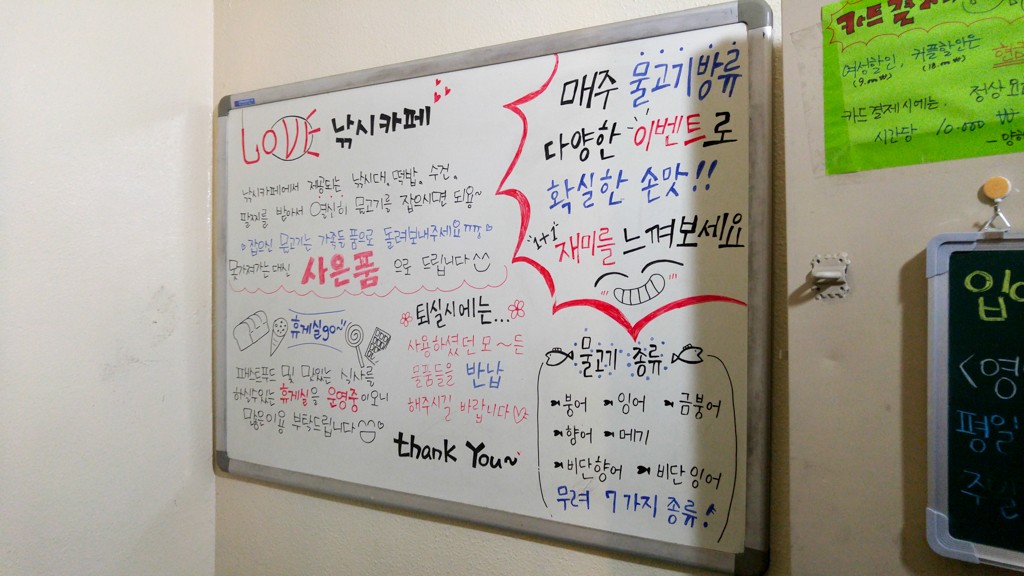 LOVE 낚시카페
낚시카페에서 제공되는 낚시대, 떡밥, 수건,
팔찌를 받아서 열심히 물고기를 잡으시면 되용~
잡으신 물고기는 가족들 품으로 돌려보내주세요
못가져가는 대신 사은품 으로 드립니다
휴게실go~
퍼스트푸드 및 맛있는 식사를
하실수있는 휴게실을 운영중이오니
많은이용 부탁드립니다
퇴실시에는...
사용하셨던 모~든
물품들을 반납
해주시길 바랍니다
thank You~
매주 물고기방류
다양한 이벤트로
확실한 손맛!!
"1+1" 재미를 느껴보세요
물고기 종류
붕어 잉어 금붕어
향어 메기
비단향어 비단잉어
무려 7가지 종류!
카드결
여성할인, 커플할인은
(9.mw) (18.mw)
카드결제시에는 정상요
시간당 10.000 ₩
입
<영
평일
주말